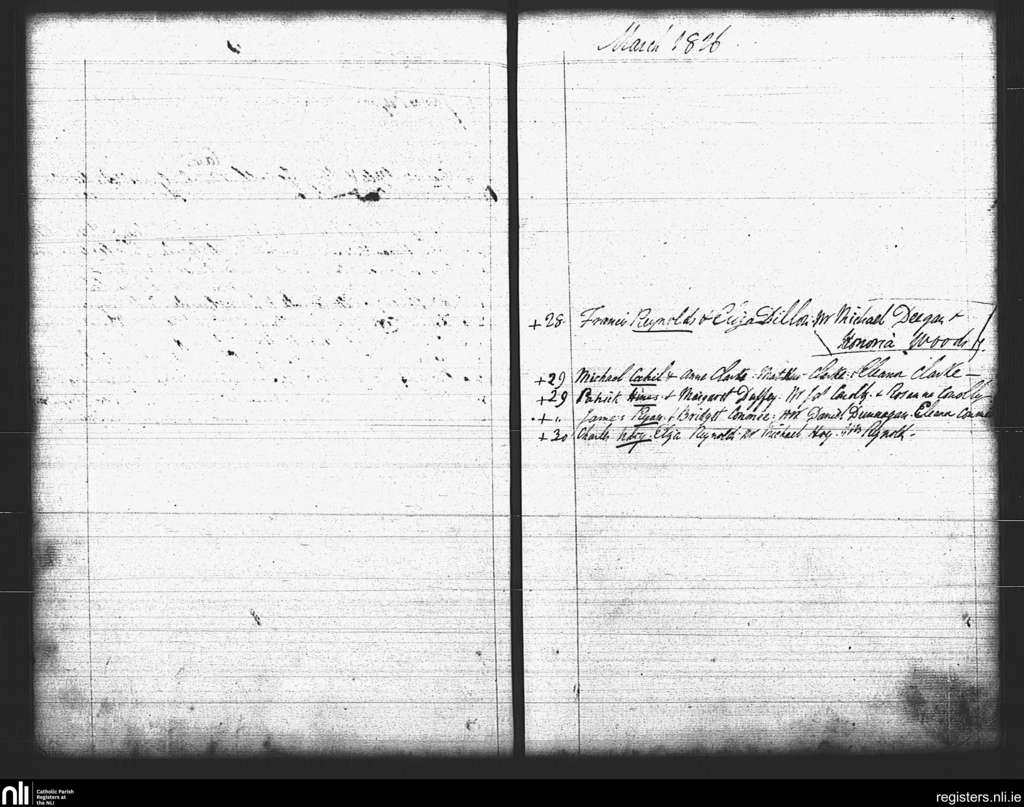 March 1826
+ 28 Francis Reynolds & Eliza Dillon. Wr Michael Deegan &
Honoria Woods
+ 29 Michael Cahil & Anne Clarke. Matthew Clarke & Eleanor Clarke —
+ 29 Patrick Hines & Margaret Duffey. Wr Jos Conolly & Rosanna Conolly
+ " James Ryan & Bridgett Connor. Wrs Daniel Dunnagan Elenor
+ 30 Charles Eliza Reynolds Wr Michael Hoy Reynolds -
nli
Catholic Parish
Registers at
the NLI
registers.nli.ie